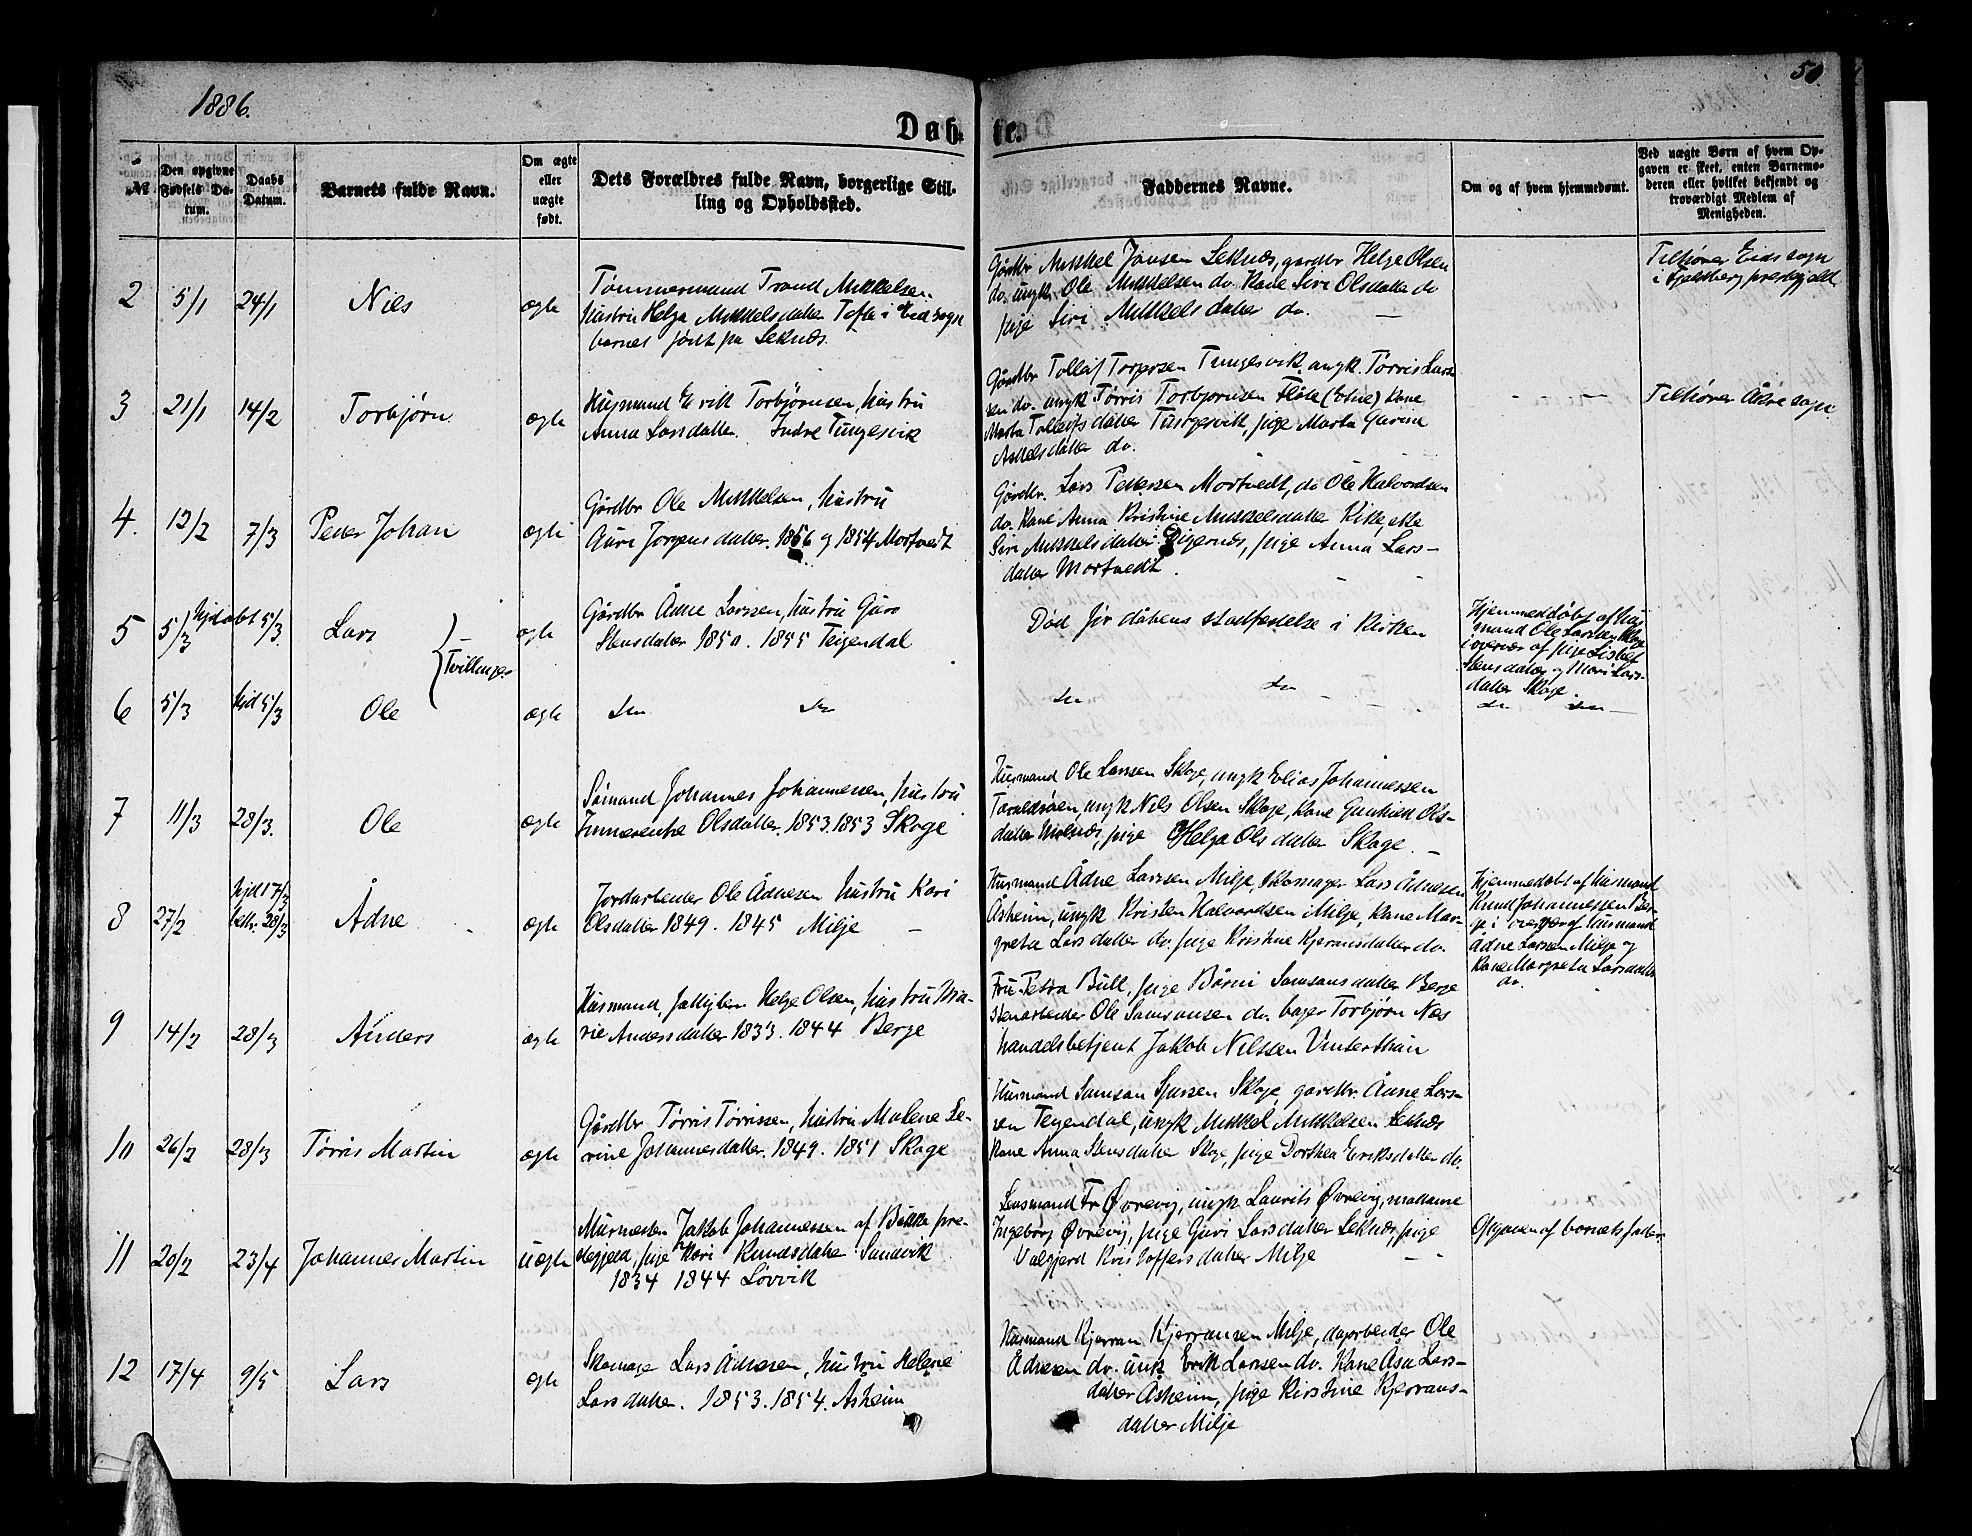 1886.
50.
Døb-
te.
№
Den opgivne Fødsels Da-tum.
Daabs Datum.
Barnets fulde Navn.
Om ægte eller uægte født.
Dets Forældres fulde Navn, borgerlige Stil-
ling og Opholdssted.
Faddernes Navne.
Om og af hvem hjemmedøbt.
Ved uægte Børn af hvem Op-
gaven er skeet, enten Barnemo-
deren eller hvilket bekjendt og
troværdigt Medlem af
Menigheden.
2
5/1
24/1
Nils
ægte
Tømmermand Trond Mikkelsen,
hustru Helga Mikkelsdatter Tofte i Eid sogn
barnet født på Leknes.
Gårdbr Mikkel Jansen Leknes, gårdbr Helge Olsen
do. ungk. Ole Mikkelsen do. Kone Siri Olsdatter do
pige Siri Mikkelsdatter do. —
Tilhører Eids sogn
i Fjelberg præstegjeld
3
21/1
14/2
Torbjørn
ægte
Husmand Erik Torbjørnsen, hustru
Anna Larsdatter. Indre Tungesvik
Gårdbr Tollef Torgersen Tungesvik, ungk. Tørris Lars-
sen do. ungk Tørris Torbjørnsen Fløte (Etne) kone
Marta Tolleifsdatter Tungesvik, pige Marta Gurine
Askelsdatter do.
— —
Tilhører Ådne sogn
4.
12/2
7/3
Peder Johan
ægte
Gårdbr Ole Mikkelsen, hustru
Auri Jørgensdatter. 1856 og 1854 Mortvedt
Gårdbr. Lars Pedersen Mortvedt, do Ole Halvordsen
do. Kone Anna Kristine Mikkelsdatter Kikke, eke
Siri Mikkelsdatter Digernes, pige Anna Lars-
datter Mortvedt.
5
5/3
hjdøbt 5/3.
Lars
} Tvillinger
ægte
Gårdbr Ådne Larssen, hustru Guro
Stensdatter 1850. 1855 Teigendal
Død før dåbens stadfæstelse i Kirken
Hjemmedøbt af hus
mand Ole Larssen Skoge
i overvær af pige Lisbet
Stensdatter og Mari Lars-
datter Skoge.
6
5/3
hjd 5/3
Ole
ægte
do do
do do
do do —
7
11/3
28/3.
Ole
ægte
Sømand Johannes Johannessen, hustru
Olsdatter. 1853. 1853 Skoge
Husmand Ole Larssen Skoge, ungk Elias Johannessen
ungk Nils Olsen Skoge, Kone Gunhild Ols-
datter Milnes, pige Helga Olsdatter Skoge. —
8
27/2
hjd 17/3
bekr. 28/3
Ådne
ægte
Jordarbeider Ole Ådnesen hustru Kari
Olsdatter 1849. 1845 Milje —
Husmand Ådne Larssen Milje, Skomager Lars Ådnesen
Åsheim, ungk Kristen Halvordsen Milje, Kone Mar-
greta Larsdatter do. pige Kristine Kjerransdatter do.
Hjemmedøbt af husmand
Knud Johannessen Ber-
ge i overvær af husmand
Ådne Larssen Milje og
Kone Margreta Larsdatter
do.
9
14/2
28/3
Anders
ægte
Husmand, fattiglem Helge Olsen, hustru Ma-
rie Andersdatter 1833. 1844 Berge
Fru Petra Bull, pige Børni Samsonsdatter Berge
stenarbeider Ole Samsonsen do. bager Torbjørn Næs
handelsbetjent Jakob Nilssen Vinterthun
10
26/2
28/3
Tørris Martin
ægte
Gårdbr Tørris Tørrissen, hustru Malene Se-
rine Johannesdatter. 1849. 1851 Skoge
Husmand Samson Sjursen Skoge, gårdbr. Ådne Lars-
sen Tegendal, ungk Mikkel Mikkelsen Leknes
Kone Anna Stensdatter Skoge, pige Dorthea Eriksdatter do.
11
20/2
23/4
Johannes Martin
uægte
Murmester Jakob Johannessen af Bakke pre-
stegjeld, pige Kari Knudsdatter Sandvik
1834 1844 Løvvik
Lensmand Fr Øvrevig, ungk Laurits Øvrevig, madame
Ingeborg Øvrevig, pige Guri Larsdatter Leknes, pige
Valgjerd Kristoffersdatter Milje — —
Opgaven af barnets fader
12
17/4
9/5
Lars
ægte
Skomager Lars Ådnesen, hustru Helene
Larsdatter. 1853. 1854. Åsheim
Husmand Kjerran Kjerransen Milje, dagarbeider Ole
Ådnesen do. ungk Erik Larssen do. Kone Åsa Lars-
datter Åsheim, pige Kirstine Kjerrans-
datter Milje